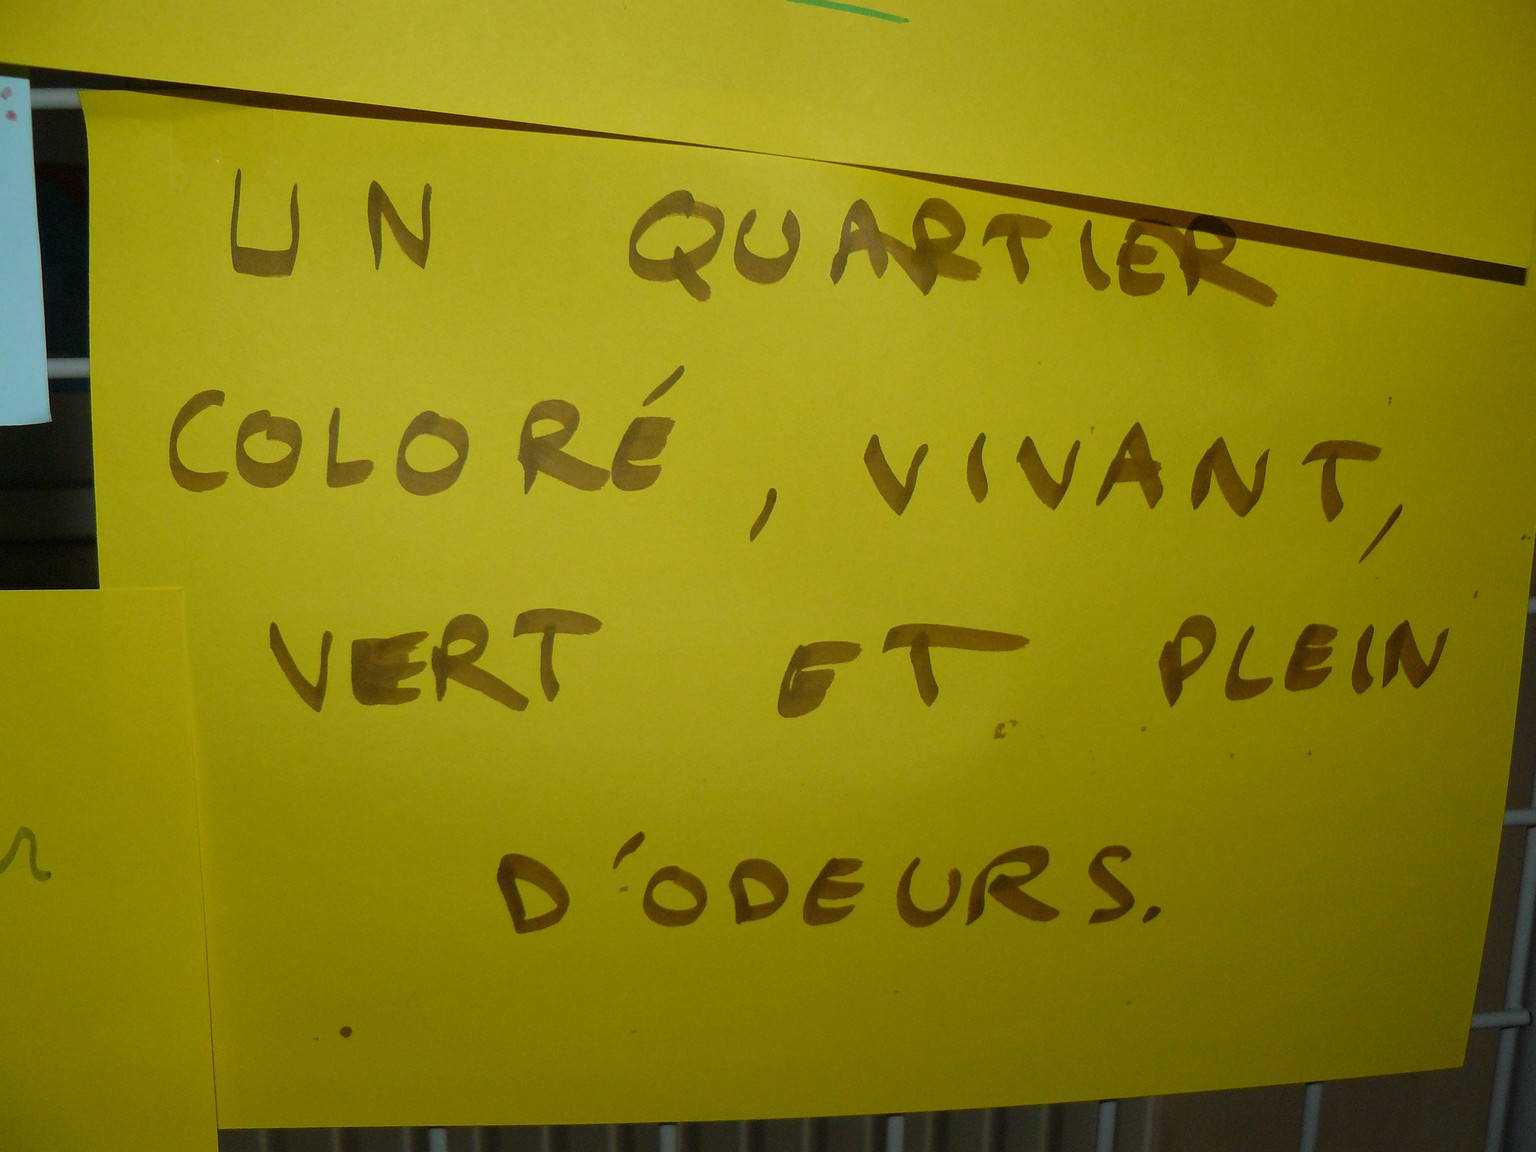 UN QUARTIER
COLORÉ, VIVANT,
VERT ET PLEIN
D'ODEURS.